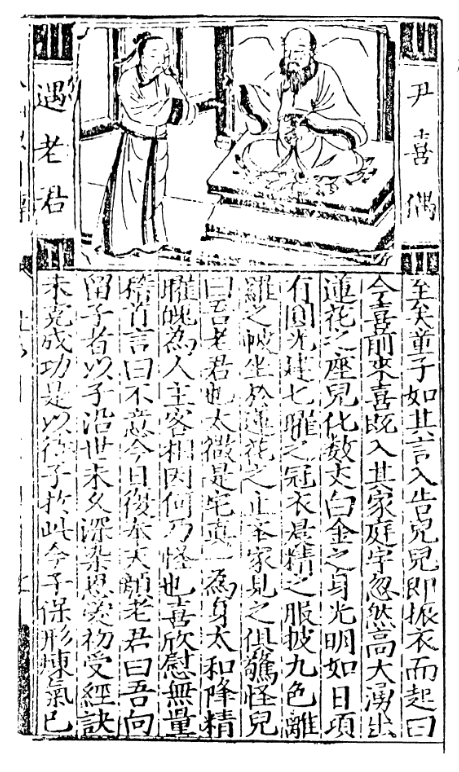 尹喜偶
遇老君
至矣童子如其言入告兒兒即振衣而起曰
令喜前來喜既入其家庭宇忽然高大湧出
蓮花之座兒化數丈白金之身光明如日項
有圓光建七曜之冠衣晨精之服披九色離
羅之帔坐於蓮花之上舉家見之俱驚怪兒
曰吾老君也太微是宅真一為身太和降精
耀魄為人主客相因何乃怪也喜欣慰無量
稽首言曰不意今日復奉天顏老君曰吾向
留子者以子沿世未久深染恩愛初受經訣
未克成功是以待子於此今子保形煉氣已